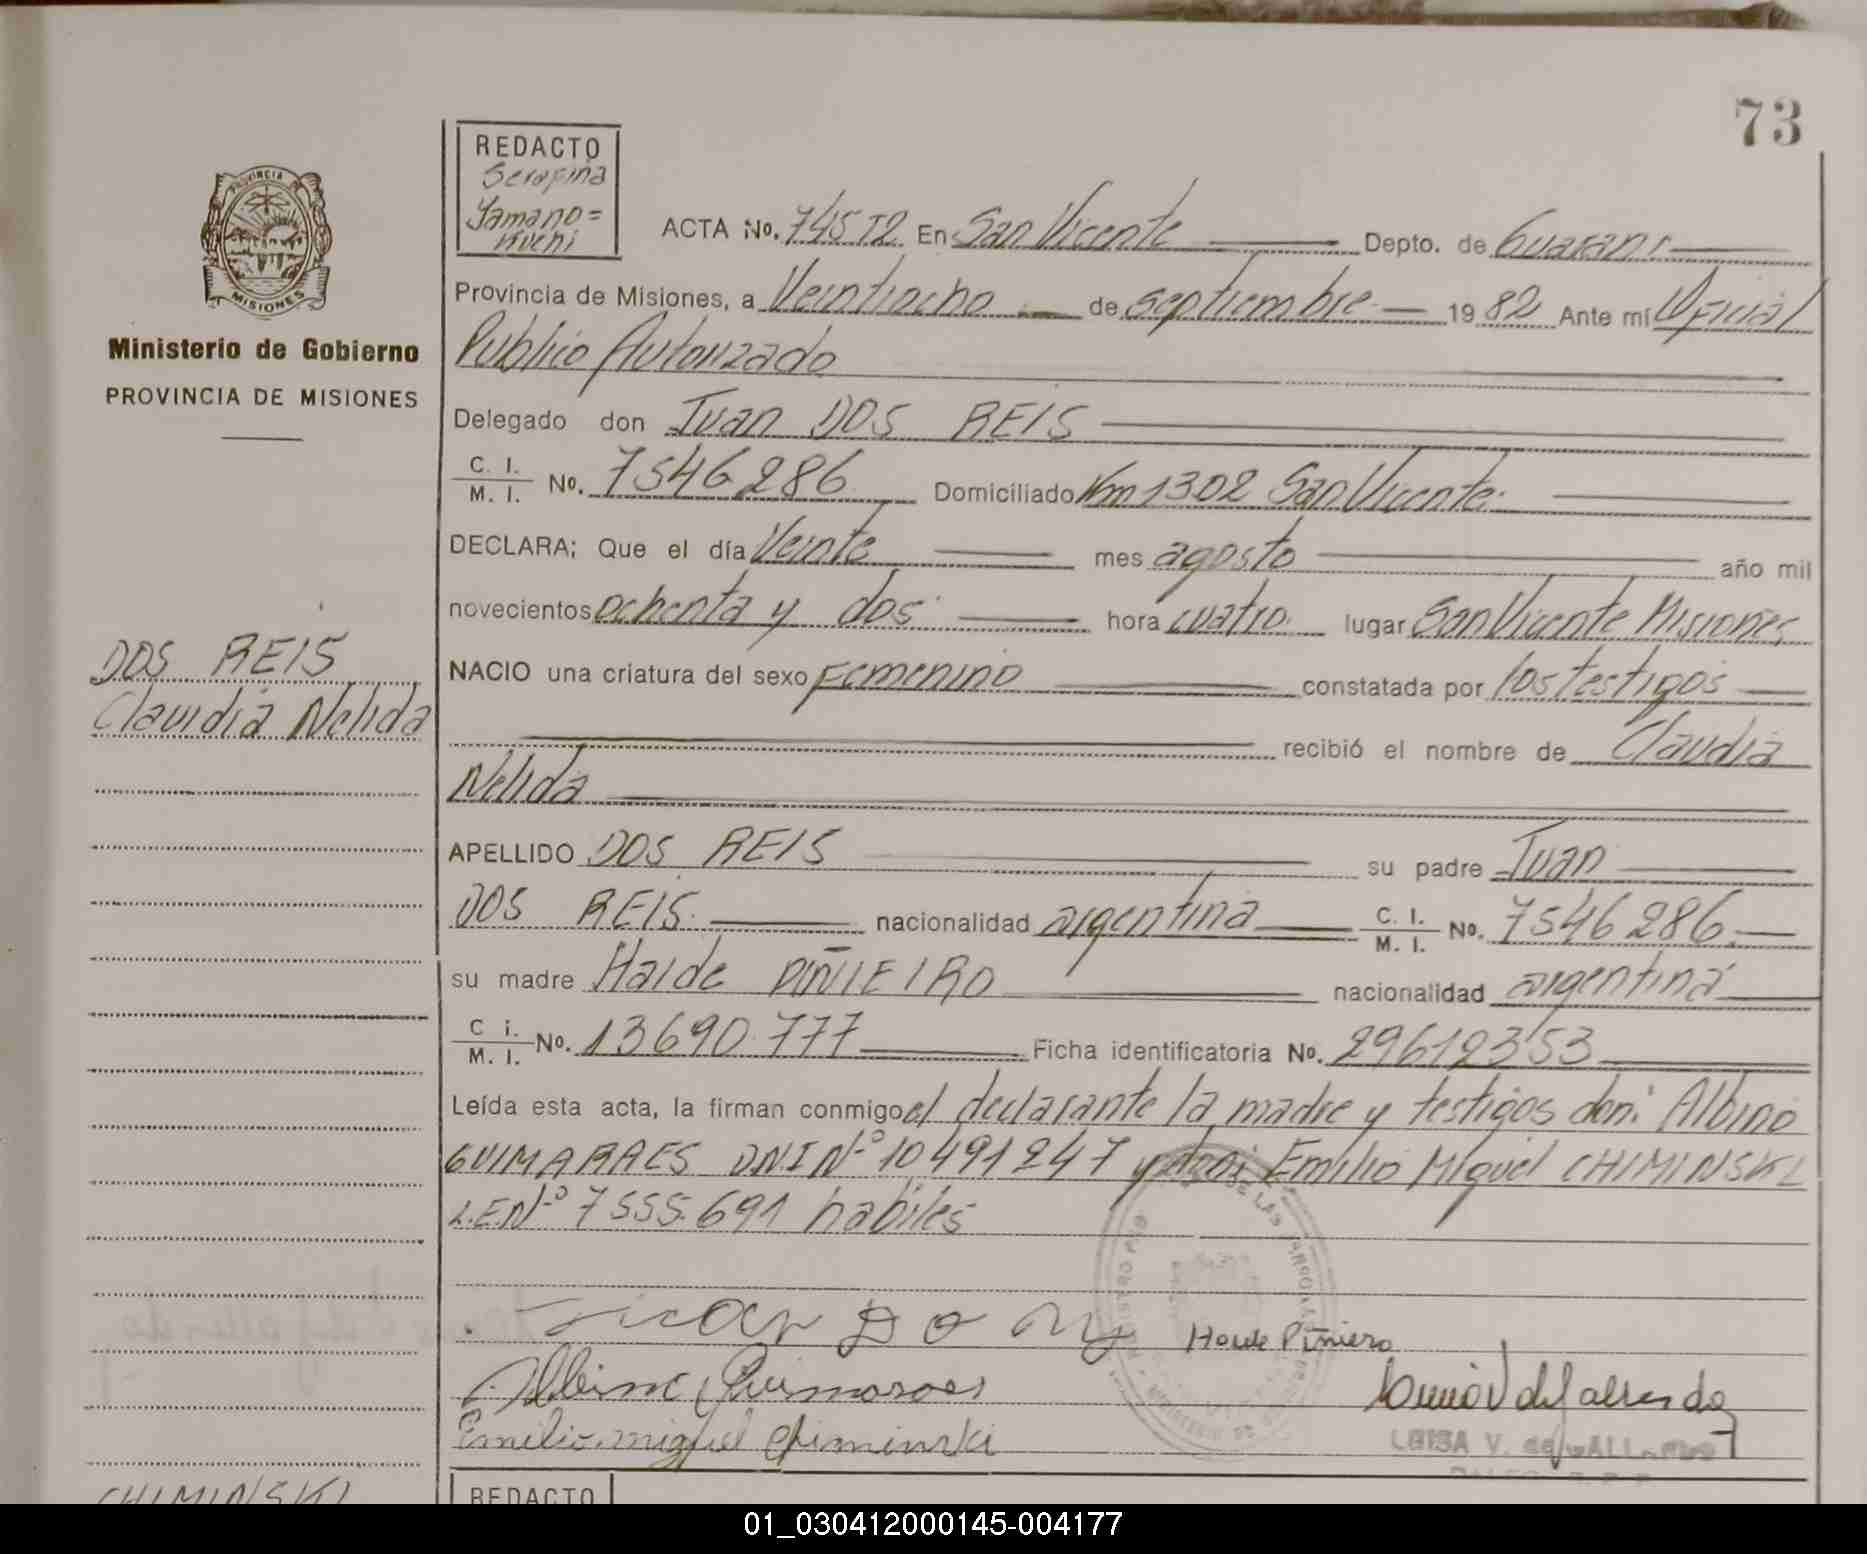 73
REDACTO
Serafina
Yamano=
kuchi
ACTA No. 745 T2 En San Vicente Depto. de Guaraní
Provincia de Misiones, a Veintiocho de septiembre 1982 Ante mí Oficial
Publico Autorizado
Delegado don Juan DOS REIS
C. I.
M. I. No. 7546286 Domiciliado Km 1302 San Vicente.
DECLARA; Que el día Veinte mes agosto año mil
novecientos ochenta y dos hora cuatro. lugar San Vicente Misiones
NACIO una criatura del sexo Femenino constatada por los testigos
recibió el nombre de Claudia
Nelida
APELLIDO DOS REIS su padre Juan
DOS REIS. nacionalidad argentina C. I.
M. I. No. 7546286.
su madre Haide PIÑIEIRO nacionalidad argentina
C i.
M. I. No. 13690.777 Ficha identificatoria No. 29612353
Leída esta acta, la firman conmigo el declarante la madre y testigos don: Albino
GUIMARAES DNI Nº 10491247 y don: Emilio Miguel CHIMINSKI
L.E Nº 7555.691 habiles
Haide Piñiero
Albino Guimaraes
Emilio miguel chiminski
LUISA V. de
REDACTO
PROVINCIA
MISIONES
Ministerio de Gobierno
PROVINCIA DE MISIONES
DOS REIS
Claudia Nelida
CHIMINSKI
01_030412000145-004177